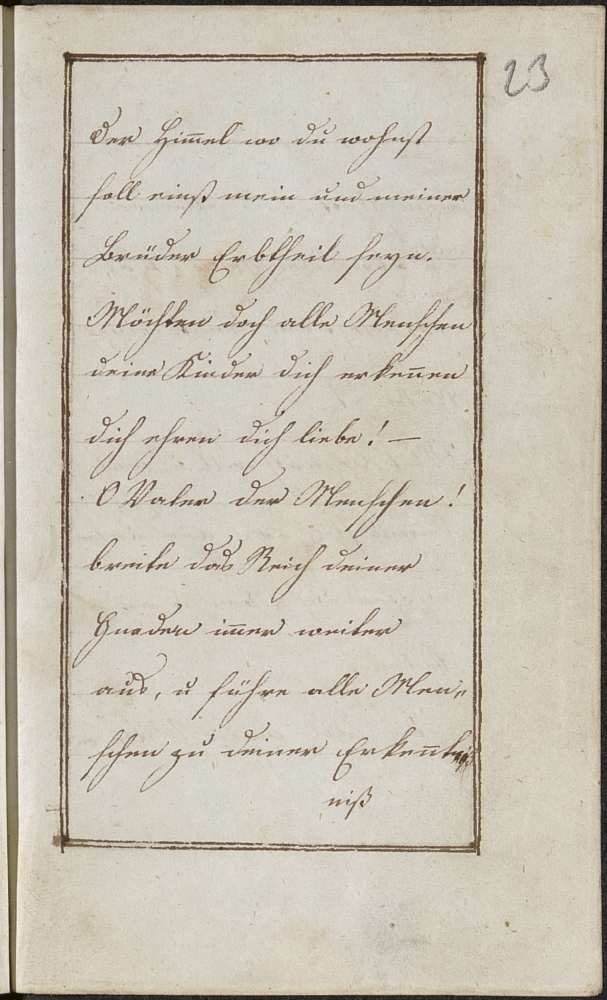 23
Der Him̅el wo du wohnst
soll einst mein und meiner
Brüder Erbtheil seyn.
Möchten doch alle Menschen
deine Kinder dich erken̅en
dich ehren dich liebe! —
O Vater der Menschen!
breite das Reich deiner
Gnaden im̅er weiter
aus, u führe alle Men„
schen zu deiner Erken̅t
niß